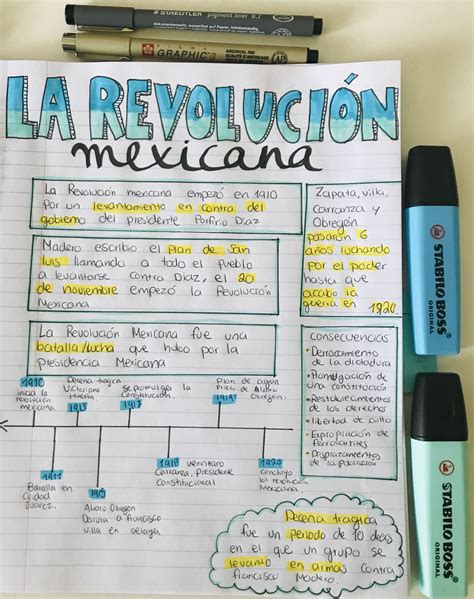 STAEDTLER pigment liner 0.7
GRAPHIC 3
ARCHIVAL INK
LA REVOLUCIÓN
mexicana
La Revolución mexicana empezó en 1910
por un levantamiento en contra del
gobierno del presidente Porfirio Díaz
Madero escribio el plan de San
luis llamando a todo el pueblo
a levantarse contra Diaz, el 20
de noviembre empezó la Revolución
Mexicana
La Revolución Mexicana fue una
batalla/lucha que hubo por la
presidencia Mexicana
Zapata, villa,
Carranza y
Obregón
pasaron 6
años luchando
por el poder
hasta que
acabo la
guerra en 1920
consecuencias
• Derrocamiento
de la dictadura
• Promulgación de
una constitución
• Restablecimientos
de los derechos
• libertad de culto
• Expropiación de
ferrocarriles
• Desplazamientos
de la población
1910
inicia la
revolución
mexicana
Decena tragica
Victoriano
Huerta
1913
se promulga la
Constitución
1917
Plan de agua
Prieta de Alvaro
Obregón
1919
1911
Batalla en
Ciudad
Juárez
1915
Alvaro Obregon
Derrota a Francisco
villa en celaya
1918 venustiano
Carranza, presidente
Constitucional
1920
concluye
la revolución
Mexicana
Decena tragica
fue un periodo de 10 dias
en el que un grupo se
levanto en armas contra
francisco Madero.
STABILO BOSS
ORIGINAL
STABILO BOSS
ORIGINAL